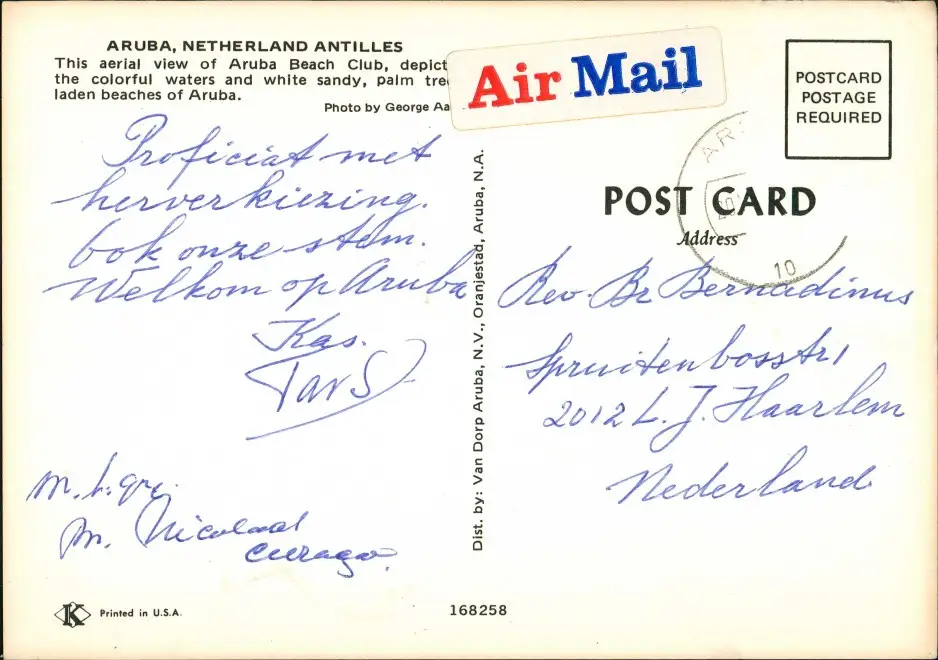 ARUBA, NETHERLAND ANTILLES
This aerial view of Aruba Beach Club, depict
the colorful waters and white sandy, palm tre
laden beaches of Aruba.
Photo by George Aa
Air Mail
POSTCARD
POSTAGE
REQUIRED
AR
10
POST CARD
Address
Proficiat met
herverkiezing.
Ook onze stem.
Welkom op Aruba
Kas.
Dist. by: Van Dorp Aruba, N.V., Oranjestad, Aruba, N.A.
Rev. Br Bernadinus
Spruitenbosstr 1
2012 L.J. Haarlem
Nederland
m. h. gr.
Curaçao.
K Printed in U.S.A.
168258